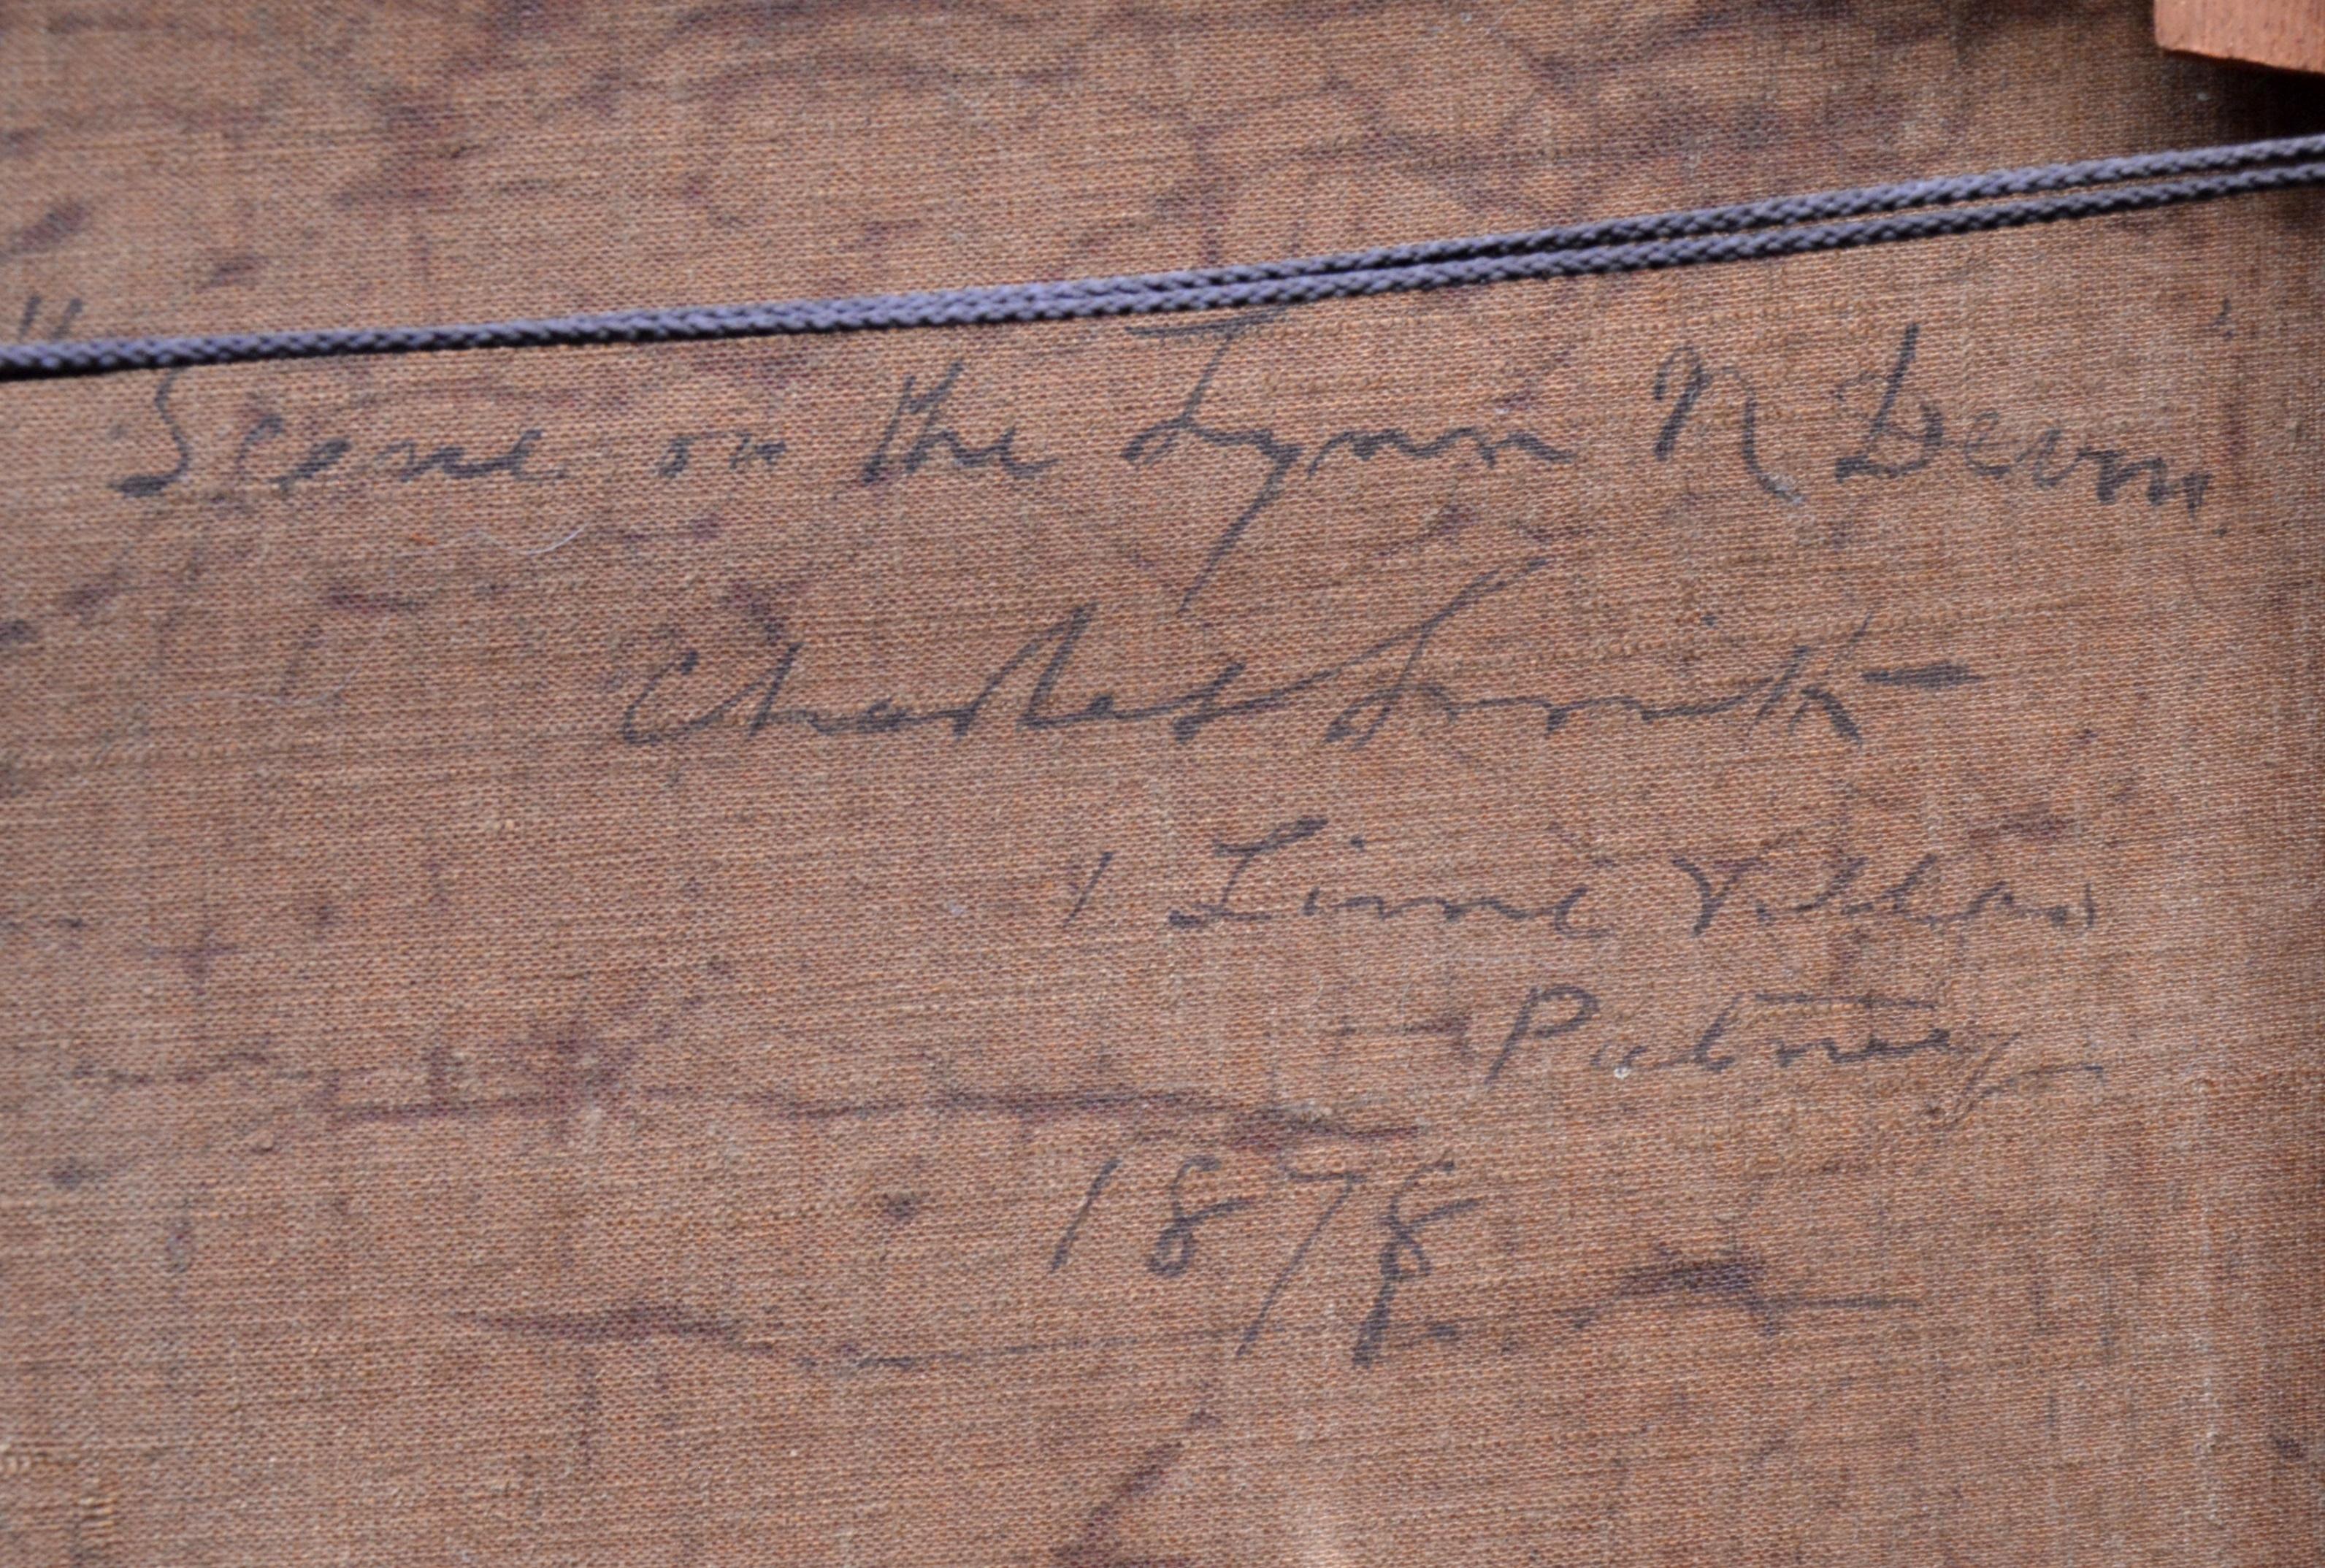 " Scene on the Lynn N Devon
Charles Smith
1 Lime Villas
Putney
1878